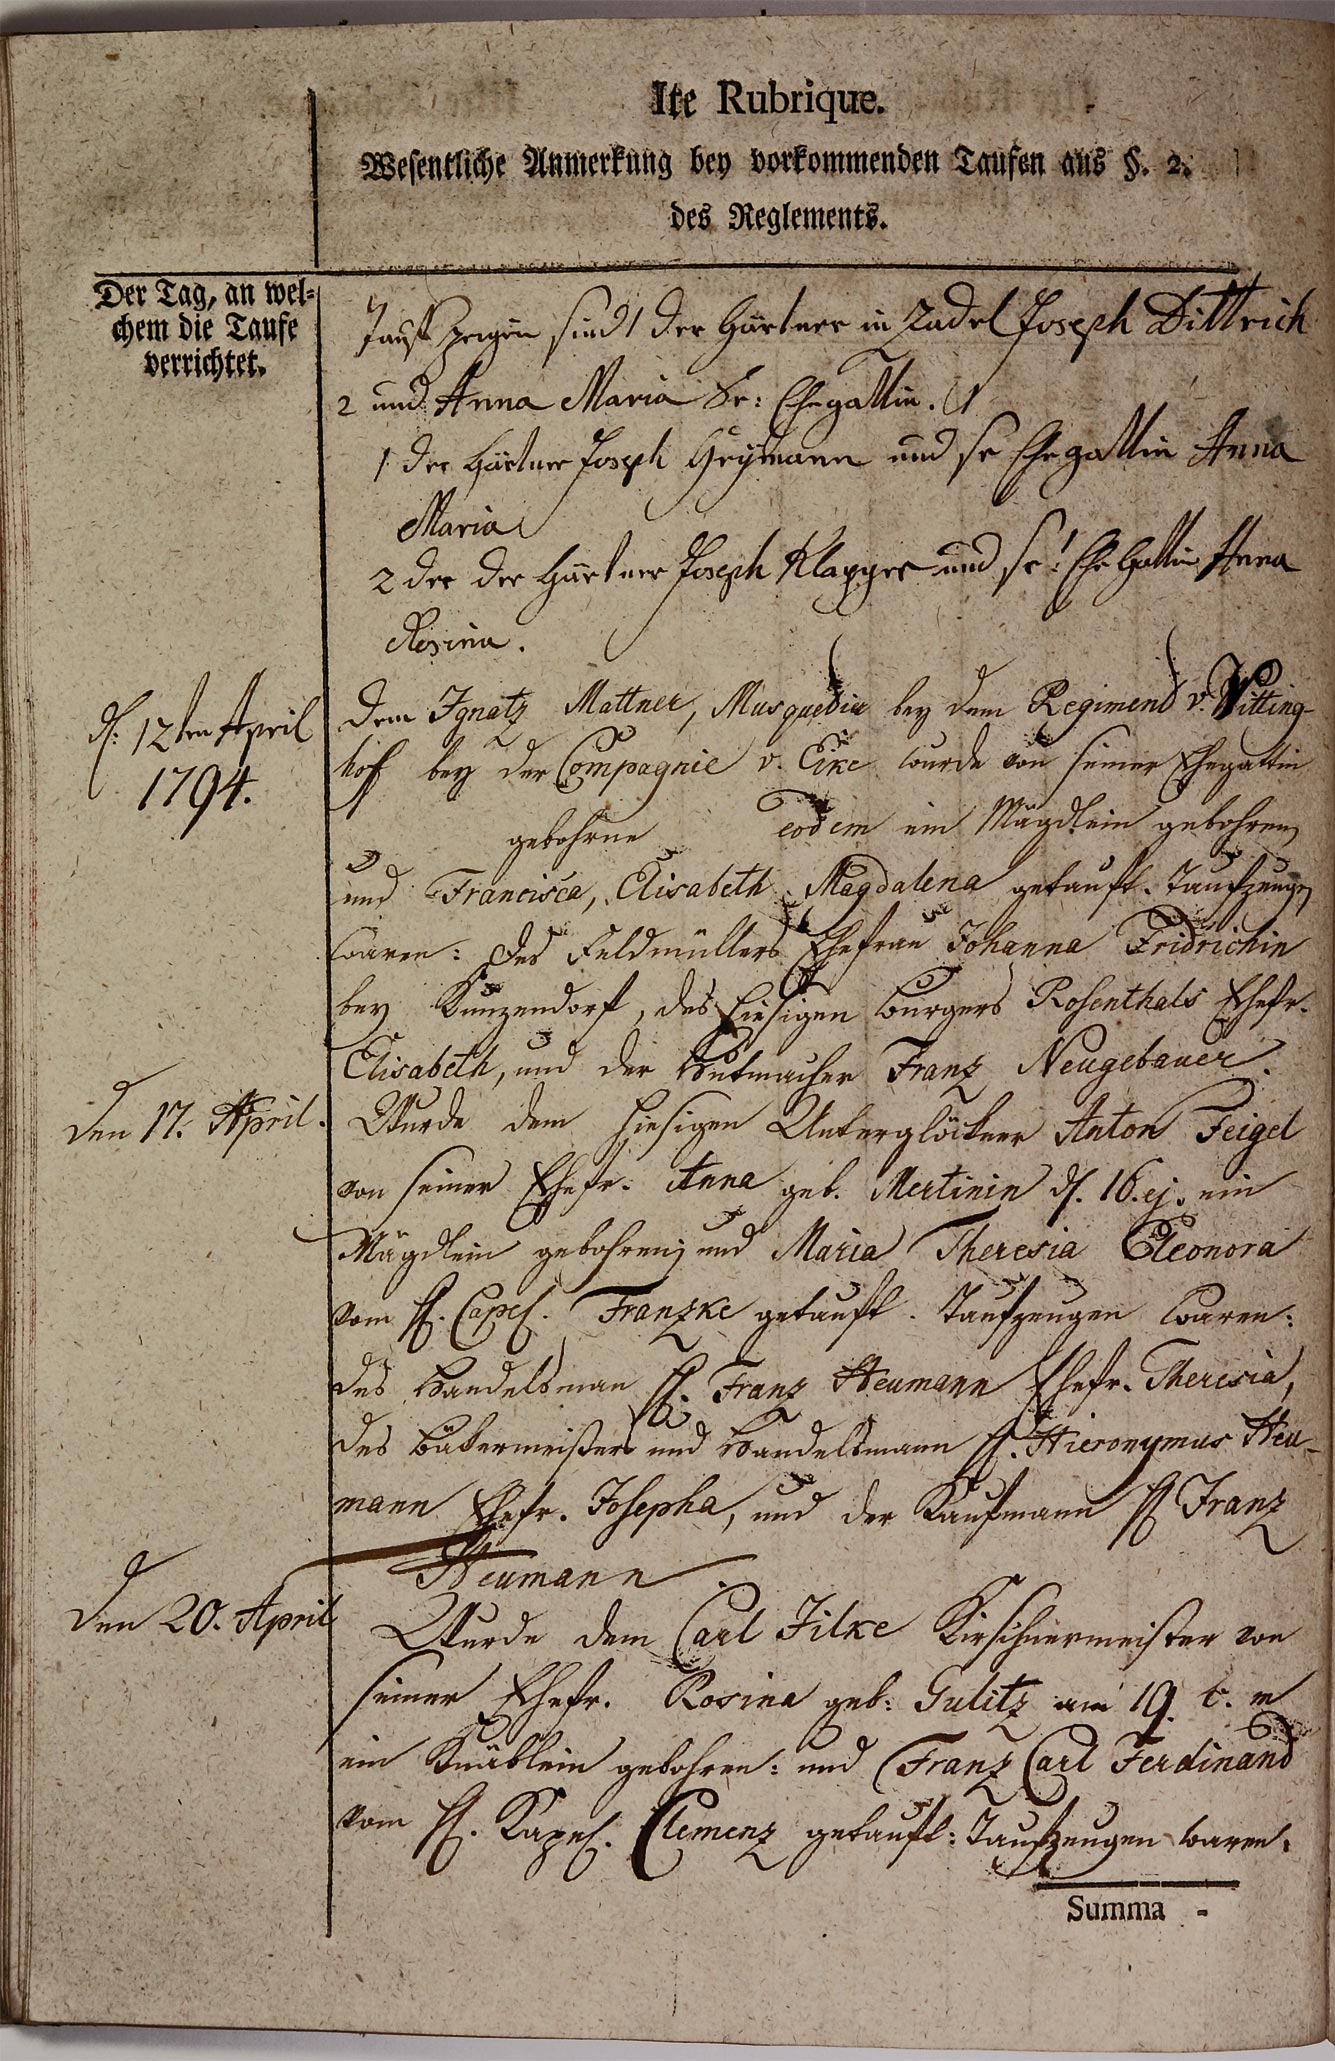 Ite Rubrique.
Wesentliche Anmerkung bey vorkommenden Taufen aus §. 2.
des Reglements.
Der Tag, an wel-
chem die Taufe
verrichtet.
Taufzeugen sind 1 der Gärtner in Zadel Joseph Dittrich
2 und Anna Maria Sr: Ehegattin.
1 der Gärtner Joseph Heymann und sr Ehegattin Anna
Maria
2 der der Gärtner Joseph Klapper und sr: Ehe Gattin Anna
Rosina.
d. 12ten April
1794.
dem Ignatz Mattner, Musquedir bey dem Regimend v. Witting-
hof bey der Compagnie v. Eike wurde von seiner Ehegattin
gebohrne eodem ein Mägdlein gebohren,
und Francisca, Elisabeth Magdalena getauft. Taufzeugen
waren: des Feldmüllers Ehefrau Johanna Fridrichin
bey Kunzendorf, des hiesigen burgers Rosenthals Ehefr.
Elisabeth, und der Hutmacher Franz Neugebauer.
den 17. April.
Wurde dem hiesigen Unterglöckner Anton Feigel
von seiner Ehefr. Anna geb. Mertinin d. 16. ej. ein
Mägdlein gebohren; und Maria Theresia Eleonora
vom H. Capel. Franzke getauft. Taufzeugen waren:
des Handelsman H. Franz Heumann Ehefr. Theresia,
des bäkermeisters und Handelsmann H. Hieronymus Heu-
mann Ehefr. Josepha, und der Kaufmann H Franz
Heumann
den 20. April
Wurde dem Carl Jilke Kirschnermeister von
seiner Ehefr. Rosina geb: Gulitz am 19. c. m
ein Knäblein gebohren: und Franz Carl Ferdinand
vom H. Kapel. Clemenz getauft: Taufzeugen waren.
Summa -